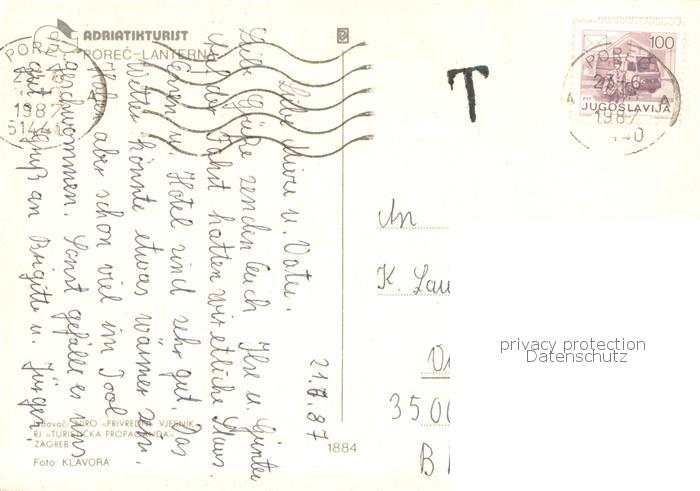 ADRIATIKTURIST
POREČ-LANTERNA
21.6.87
Liebe Mizi u. Vater.
Liebe Grüße senden Euch Ilse u. Günter
Auf der Fahrt hatten wir etliche Staus.
Essen u. Hotel sind sehr gut. Das
Wetter könnte etwas wärmer sein.
Haben aber schon viel im Pool
geschwommen. Sonst gefällt es uns
gut. Gruß an Brigitte u. Jürgen.
Izdavač: BIRO »PRIVREDNI VJESNIK«
RJ »TURISTIČKA PROPAGANDA«
ZAGREB
Foto: KLAVORA
1884
POREČ
1987
51440
A
T
100
JUGOSLAVIJA
POREČ
23.6
1987
A
An
K. Lau
350
B
privacy protection
Datenschutz